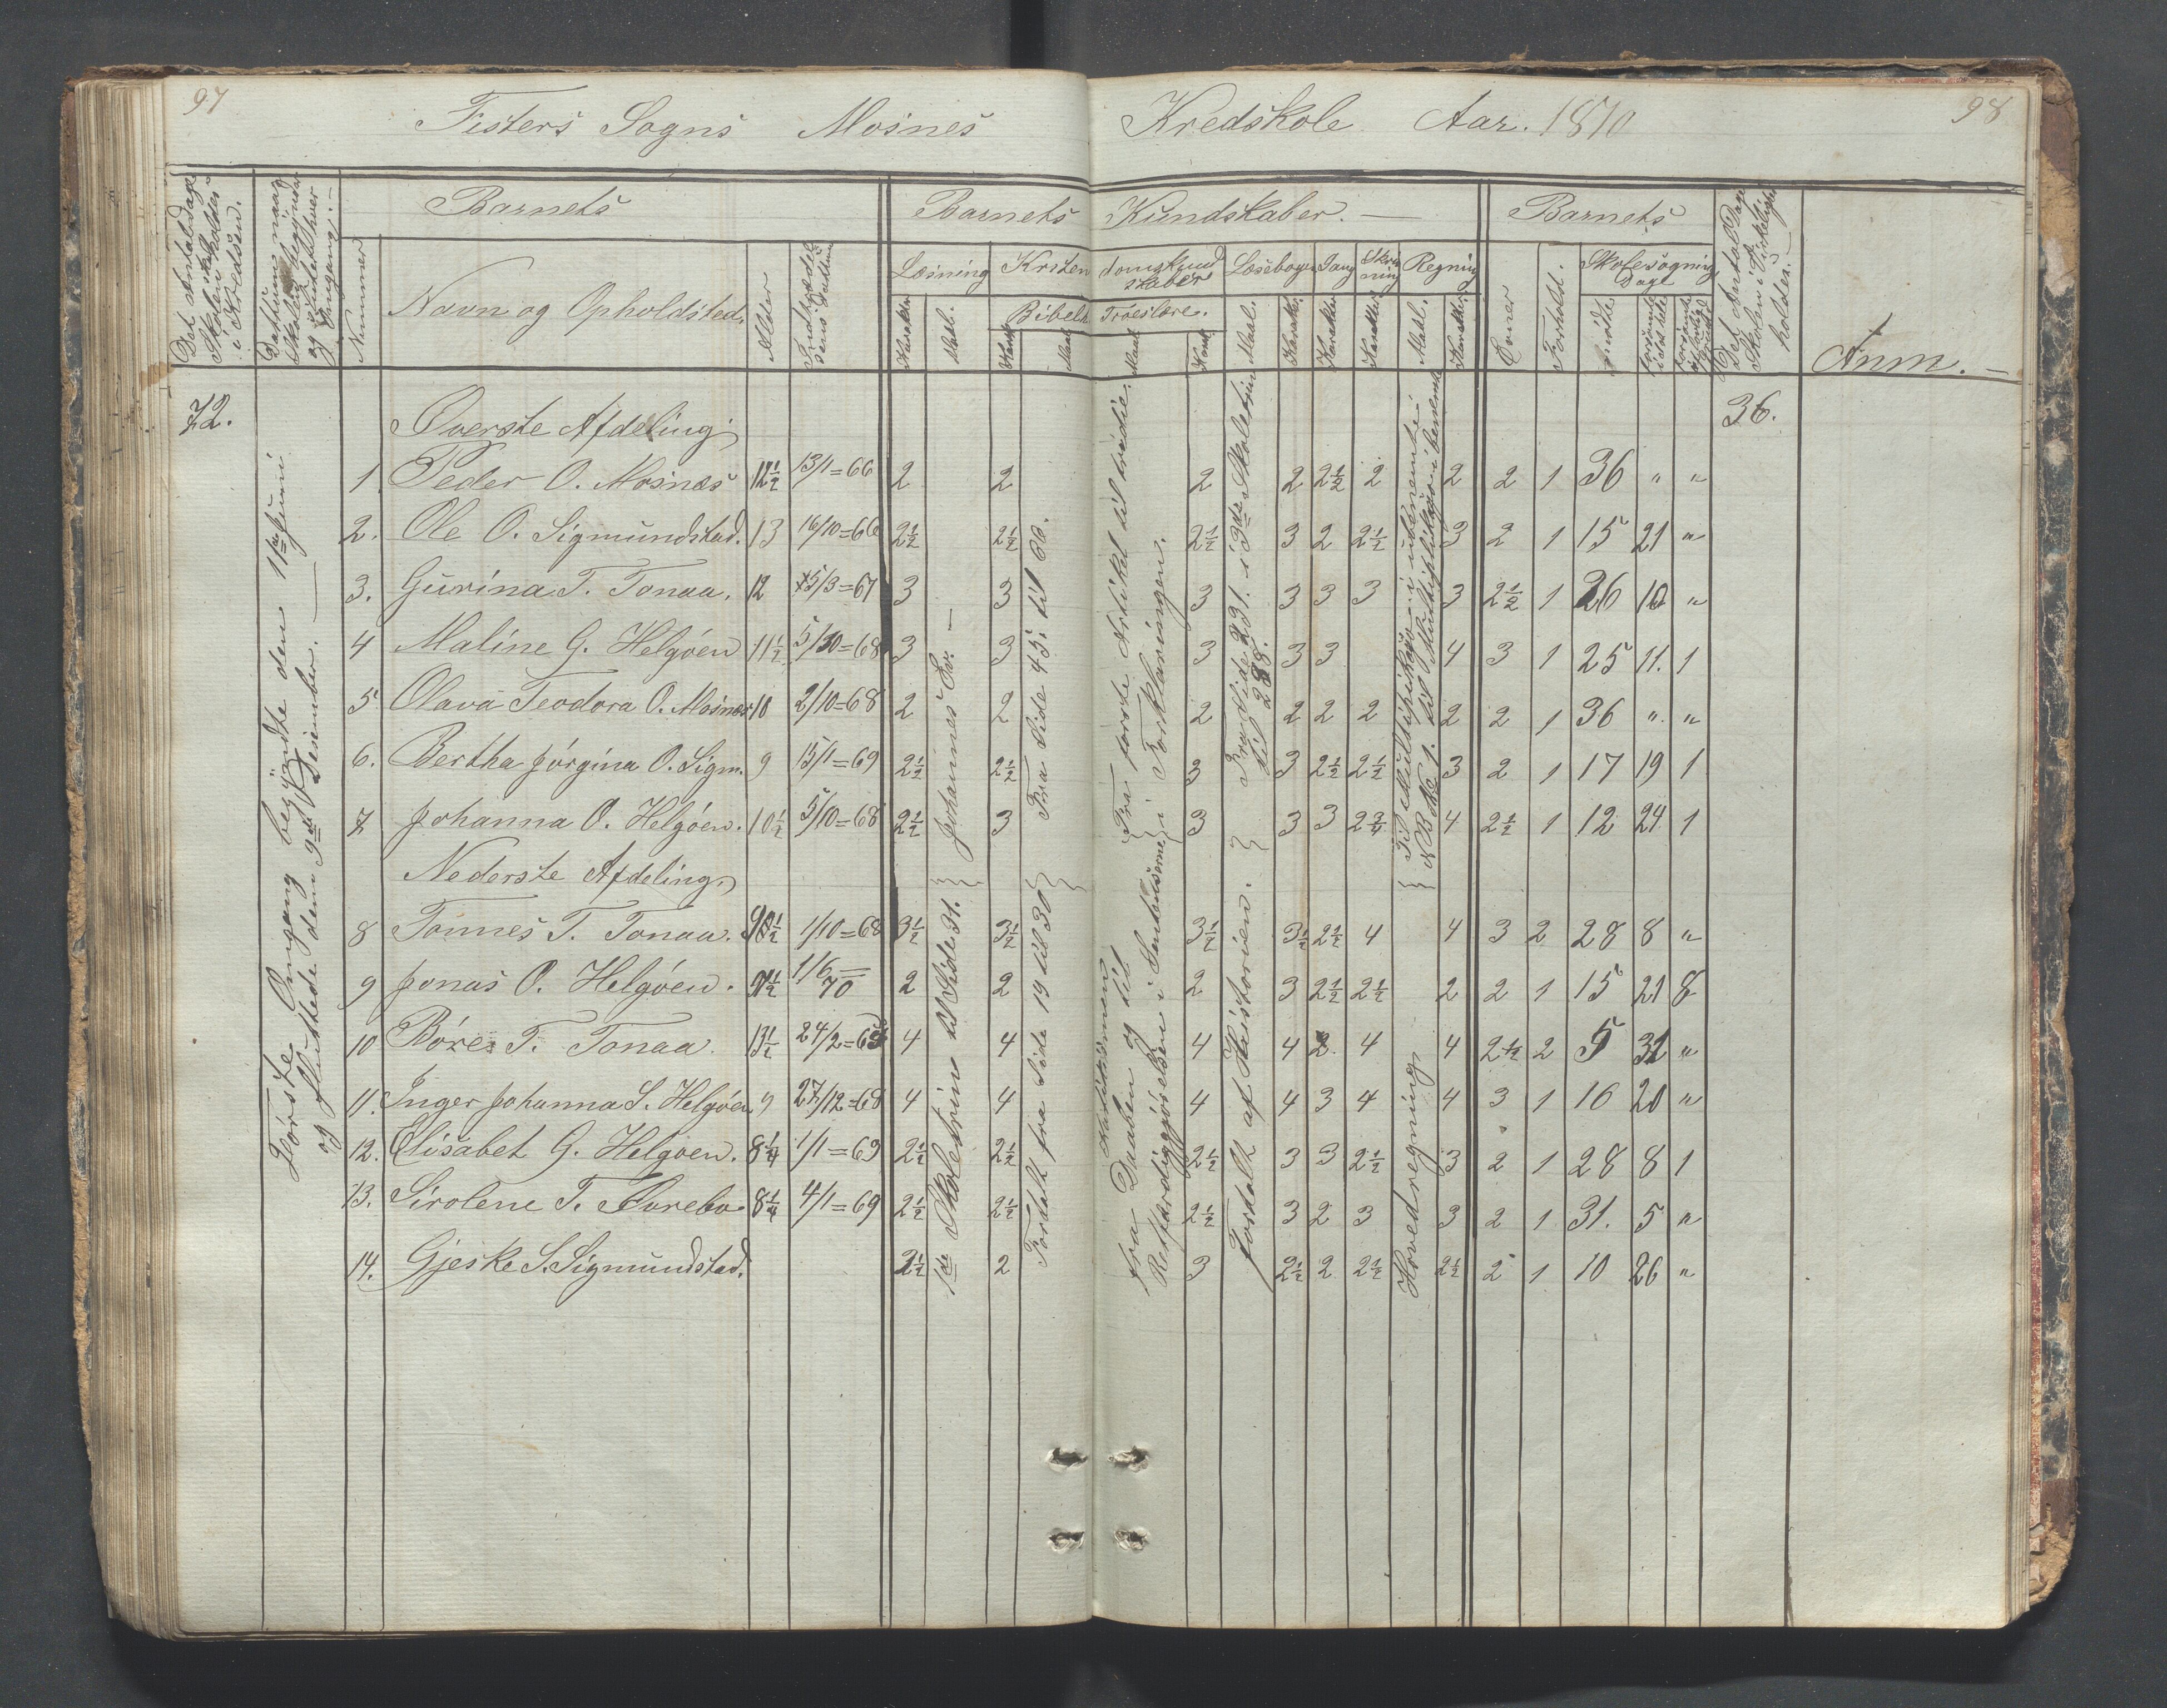 97
Fisters Sogns Mosnes Kredskole Aar. 1870
98
Det Antal Dage Skolen skal holdes i Kredsen.
Datum naar Skolen begynder og sluttes hver Omgang.
Nummer
Barnets
Navn og Opholdsted.
Alder
Barnets Kundskaber.
Læsning
Karakter
Maal.
Kristendomskundskaber
Bibelh.
Karakt.
Maal
Troeslære.
Maal
Karakt.
Læsebogen
Maal.
Karakter
Sang
Karakter
Skrivning
Karakter
Regning
Maal.
Karakter
Barnets
Evner
Forhold.
Skolesøgning Dage
mødte
forsømte i det hele
forsømte af lovlig Grund
Det Antal Dage Skolen i Virkelighed holdes.
Anm.
72.
Første Omgang begyndte den 11te Juni
og sluttede den 9de Desember.
36.
Øverste Afdeling.
1 Peder O. Mosnes 12½ 13/1=66 2 2 2 2 2½ 2 2 2 1 36 " "
2. Ole O. Sigmundstad. 13 16/10=66 2½ 2½ 2½ 3 2 2½ 3 2 1 15 21 "
3. Gurina T. Tonaa. 12 15/3=67 3 3 3 3 3 3 3 2½ 1 26 10 "
4 Maline G. Helgøen 11½ 5/10=68 3 3 3 3 3 4 3 1 25 11. 1
5 Olava Teodora O. Mosnes 10 2/10=68 2 2 2 2 2 2 2 2 1 36 " "
6. Bertha Jørgina O. Sigm. 9 15/1=69 2½ 2½ 3 3 2½ 2½ 3 2 1 17 19 1
7 Johanna O. Helgøen. 10½ 5/10=68 2½ 3 3 3 3 2¾ 4 2½ 1 12 24 1
Johannes Ev.
Fra Side 45 til 60.
Fra første Artikel til tredie i Forklaringen.
Fra Side 231. i 3de Skoletrin til 288.
Til Multiplikasion i ubenevnte & B № 1. til Multiplikasion i benevnte
Nederste Afdeling.
8 Tønnes T. Tonaa. 1/10=68 3½ 3½ 3½ 3½ 2½ 4 4 3 2 28 8 "
9 Jonas O. Helgøen. 1/6=70 2 2 2 3 2½ 2½ 2 2 1 15 21 8
10 Børe T. Tonaa 13½ 24/2= 4 4 4 4 2. 4 4 2½ 2 5 31 "
11. Inger Johanna S. Helgøen 9 27/12=68 4 4 4 4 3 4 4 3 1 16 20 "
12. Elisabet G. Helgøen. 8¼ 1/1=69 2½ 2½ 2½ 3 3 2½ 3 2 1 28 8 1
13. Sirolene T. 8¼ 4/1=69 2½ 2½ 2½ 3 2 3 3 2 1 31. 5 "
14. Gjeske S. Sigmundstad. 2½ 2 3 2½ 2 2½ 2½ 2 1 10 26 "
1de Skoletrin til Side 31.
Fortalt fra Side 19 til 30
fra Daaben og til
Retfærdiggjørelsen i
Fortalt af Historien.
Hovedregning